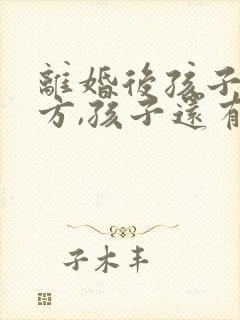 離婚後孩子
方,孩子還有
子木丰